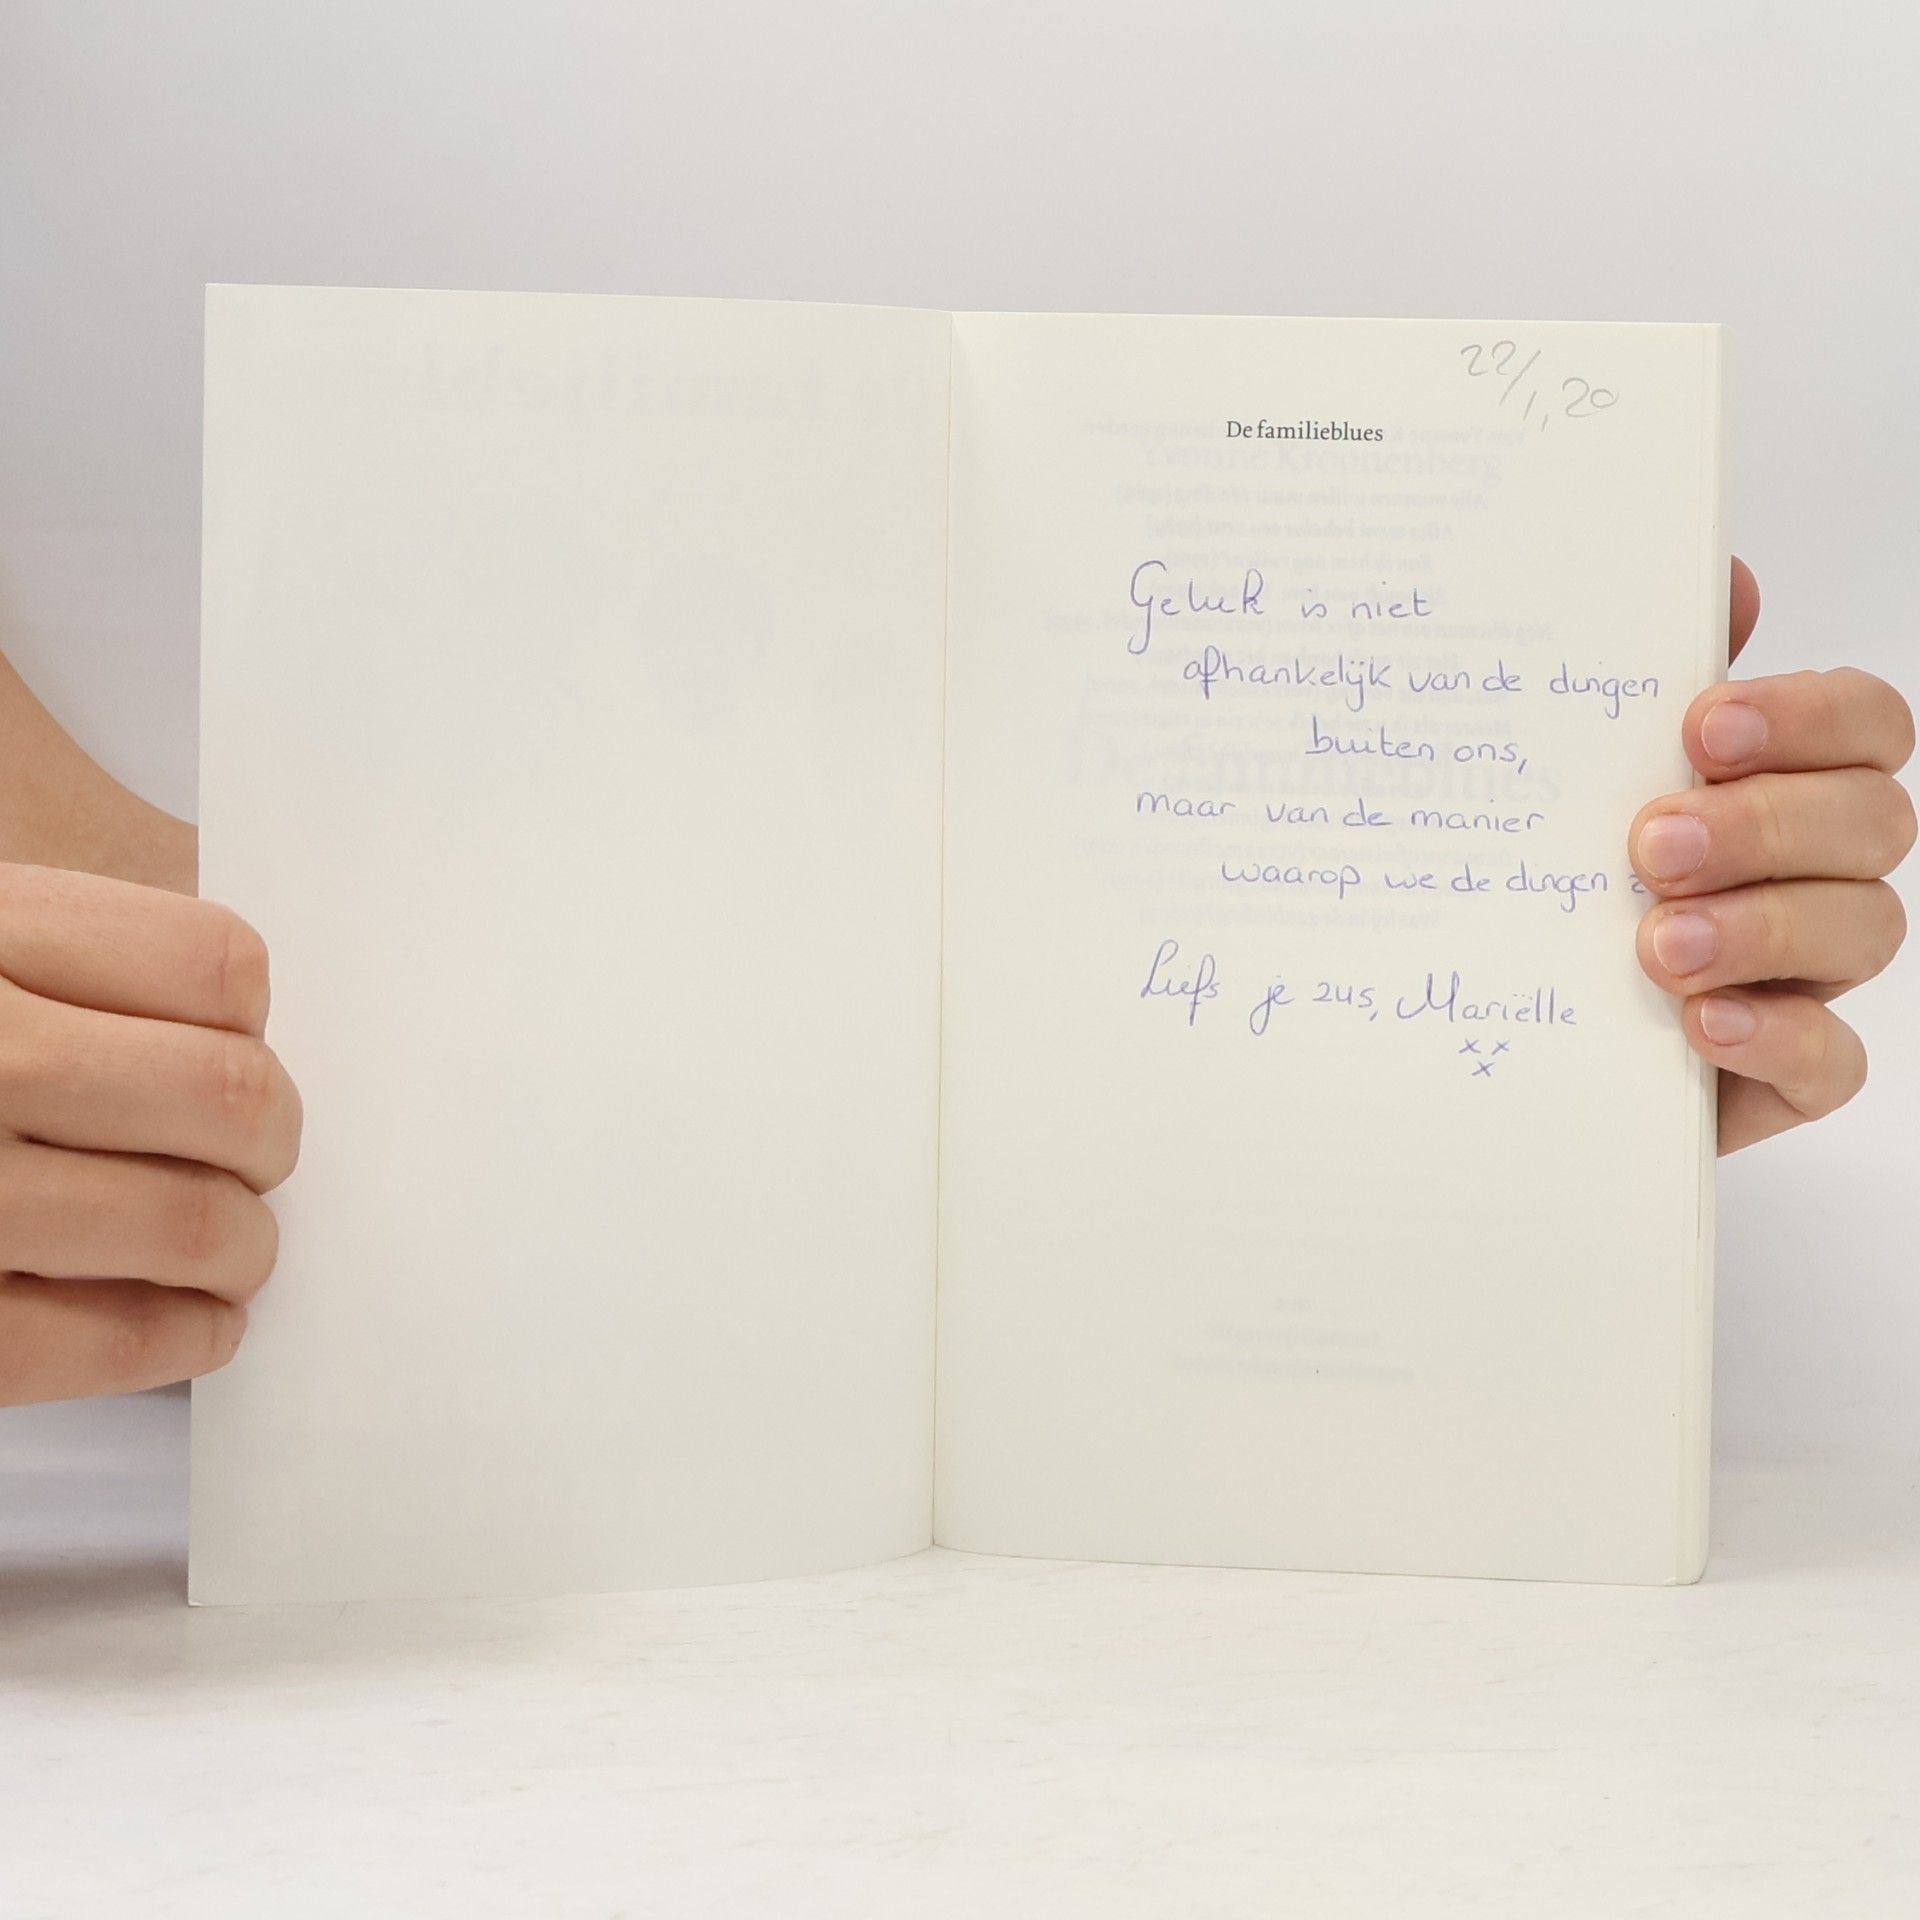 22/1, 20
De familieblues
Yvonne Kroonenberg
Geluk is niet
afhankelijk van de dingen
buiten ons,
De familieblues
maar van de manier
waarop we de dingen
Liefs je zus, Mariëlle
x x
x